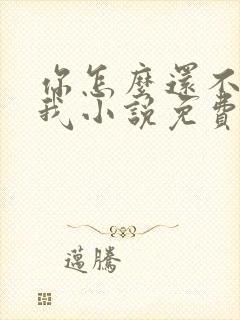 你怎麼還不
我小說免費
邁騰